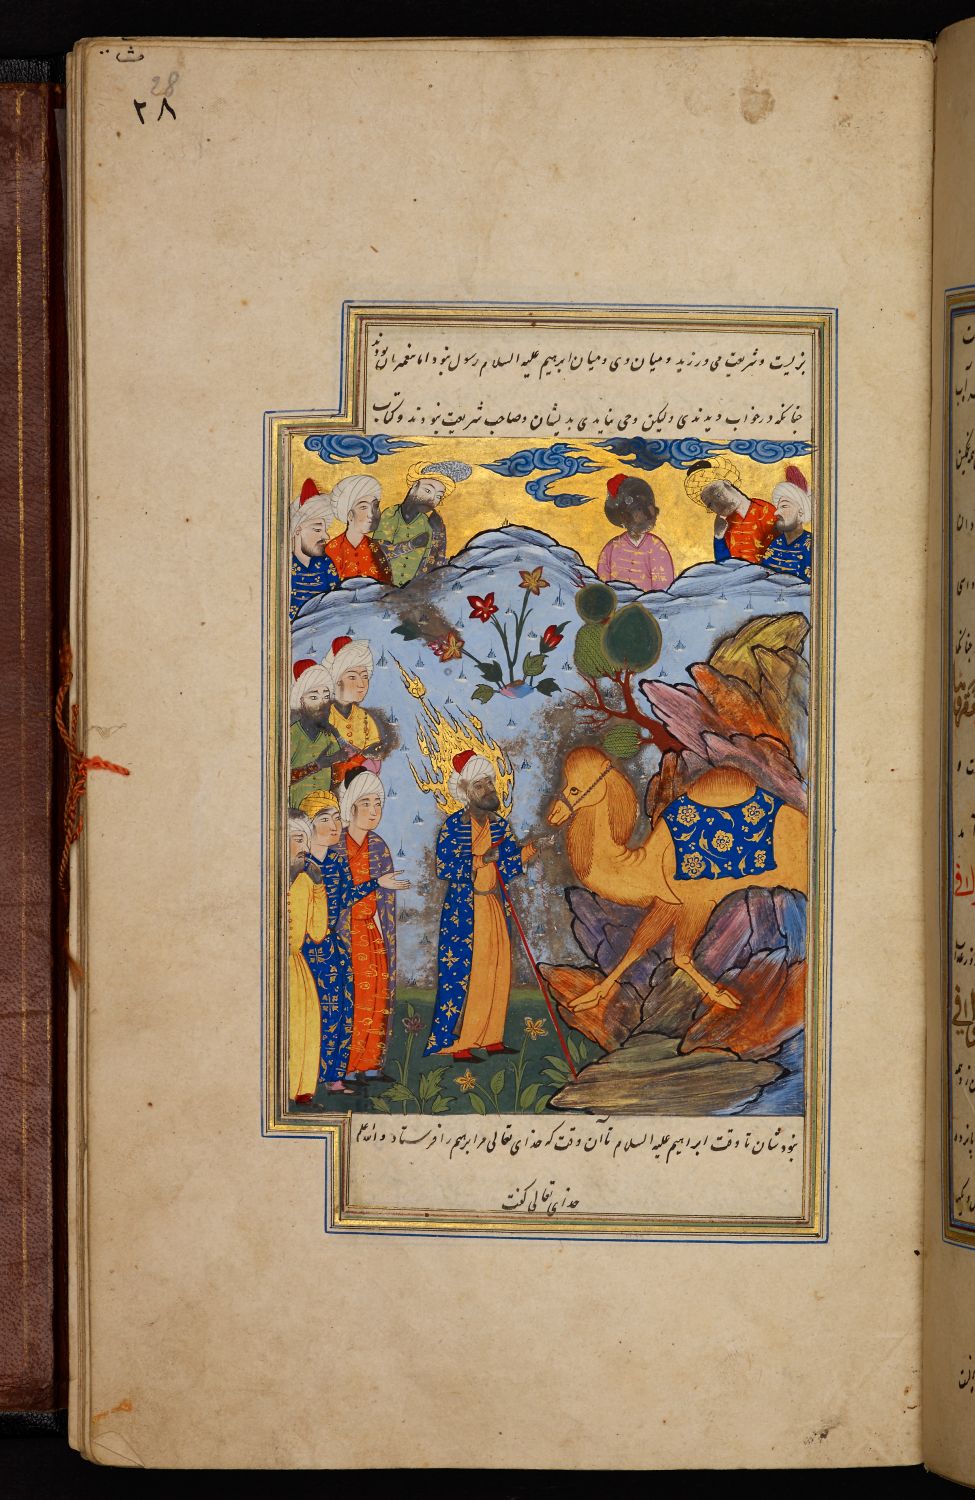 ث
28
۲۸
بزیست و شریعت می ورزید و میان وی و میان ابرهیم علیه السلام رسول نبود اما پیغمبران بودند
چنانکه در خواب دیدندی ولیکن وحی نیامدی بدیشان و صاحب شریعت نبودند و کتاب
نبود شان تا وقت ابراهیم علیه السلام تا آن وقت که خدای تعالی مر ابرهیم را فرستاد والله اعلم
خدای تعالی گفت